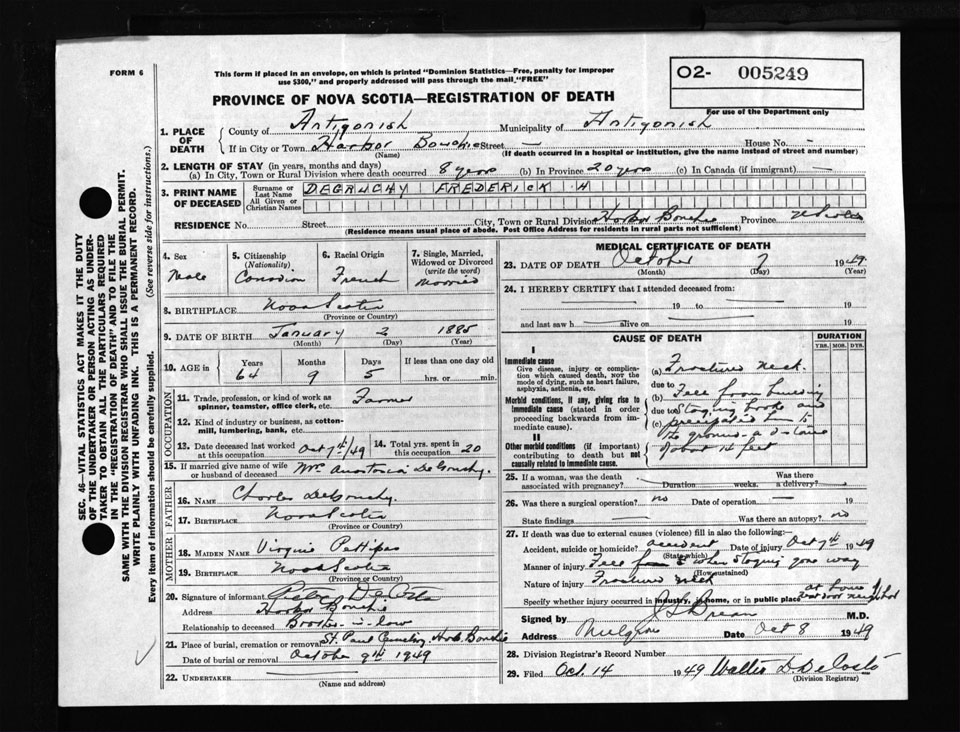 FORM 6
This form if placed in an envelope, on which is printed "Dominion Statistics—Free, penalty for improper
use $300," and properly addressed will pass through the mail "FREE"
O2- 005249
For use of the Department only
PROVINCE OF NOVA SCOTIA—REGISTRATION OF DEATH
SEC. 46—VITAL STATISTICS ACT MAKES IT THE DUTY
OF THE UNDERTAKER OR PERSON ACTING AS UNDER-
TAKER TO OBTAIN ALL THE PARTICULARS REQUIRED
IN THE "REGISTRATION OF DEATH" AND TO FILE THE
SAME WITH THE DIVISION REGISTRAR WHO SHALL ISSUE THE BURIAL PERMIT.
WRITE PLAINLY WITH UNFADING INK. THIS IS A PERMANENT RECORD.
Every item of information should be carefully supplied. (See reverse side for instructions.)
1. PLACE OF DEATH County of Antigonish Municipality of Antigonish
If in City or Town Harbor Bouchie Street — House No. —
(Name) (If death occurred in a hospital or institution, give the name instead of street and number)
2. LENGTH OF STAY (in years, months and days)
(a) In City, Town or Rural Division where death occurred 8 years (b) In Province 20 years (c) In Canada (if immigrant) —
3. PRINT NAME OF DECEASED Surname or Last Name DEGRUCHY FREDERICK H
All Given or Christian Names
RESIDENCE No. Street City, Town or Rural Division Harbor Bouchie Province N Scotia
(Residence means usual place of abode. Post Office Address for residents in rural parts not sufficient)
4. Sex Male
5. Citizenship (Nationality) Canadian
6. Racial Origin French
7. Single, Married, Widowed or Divorced (write the word) Married
8. BIRTHPLACE Nova Scotia
(Province or Country)
9. DATE OF BIRTH January 2 1885
(Month) (Day) (Year)
10. AGE in Years Months Days If less than one day old
64 9 5 hrs. or min.
OCCUPATION
11. Trade, profession, or kind of work as spinner, teamster, office clerk, etc. Farmer
12. Kind of industry or business, as cotton-mill, lumbering, bank, etc.
13. Date deceased last worked at this occupation Oct 7th/49
14. Total yrs. spent in this occupation 20
15. If married give name of wife or husband of deceased Mrs Anastasia DeGruchy.
FATHER
16. NAME Charles DeGruchy.
17. BIRTHPLACE Nova Scotia
(Province or Country)
MOTHER
18. MAIDEN NAME Virginie Pettipas
19. BIRTHPLACE Nova Scotia
(Province or Country)
20. Signature of informant DeCoste
Address Harbor Bouchie
Relationship to deceased Brother-in-law
21. Place of burial, cremation or removal St. Paul Cemetery, Harb. Bouchie
Date of burial or removal October 9th 1949
22. UNDERTAKER
(Name and address)
MEDICAL CERTIFICATE OF DEATH
23. DATE OF DEATH October 7 1949
(Month) (Day) (Year)
24. I HEREBY CERTIFY that I attended deceased from:
— 19 to — 19
and last saw h — alive on — 19
CAUSE OF DEATH
DURATION
YRS. MOS. DYS.
I
Immediate cause
Give disease, injury or complication which caused death, NOT the mode of dying, such as heart failure, asphyxia, asthenia, etc.
(a) Fracture neck.
due to
Morbid conditions, if any, giving rise to immediate cause (stated in order proceeding backwards from immediate cause).
(b) Fall from
due to staging broke and
(c) precipitated to
the ground a distance
II
Other morbid conditions (if important) contributing to death but not causally related to immediate cause.
of about 14 feet
25. If a woman, was the death associated with pregnancy? Duration weeks. Was there a delivery?
26. Was there a surgical operation? no Date of operation — 19
State findings — Was there an autopsy? no
27. If death was due to external causes (violence) fill in also the following:—
Accident, suicide or homicide? accident Date of injury Oct 7th 1949
(State which)
Manner of injury Fall when staging gave way
(How sustained)
Nature of injury Fracture neck
Specify whether injury occurred in industry, in home, or in public place at home of next door neighbor
Signed by M.D.
Address Mulgrave Date Oct 8 1949
28. Division Registrar's Record Number
29. Filed Oct. 14 1949 Walter D. DeCoste
(Division Registrar)